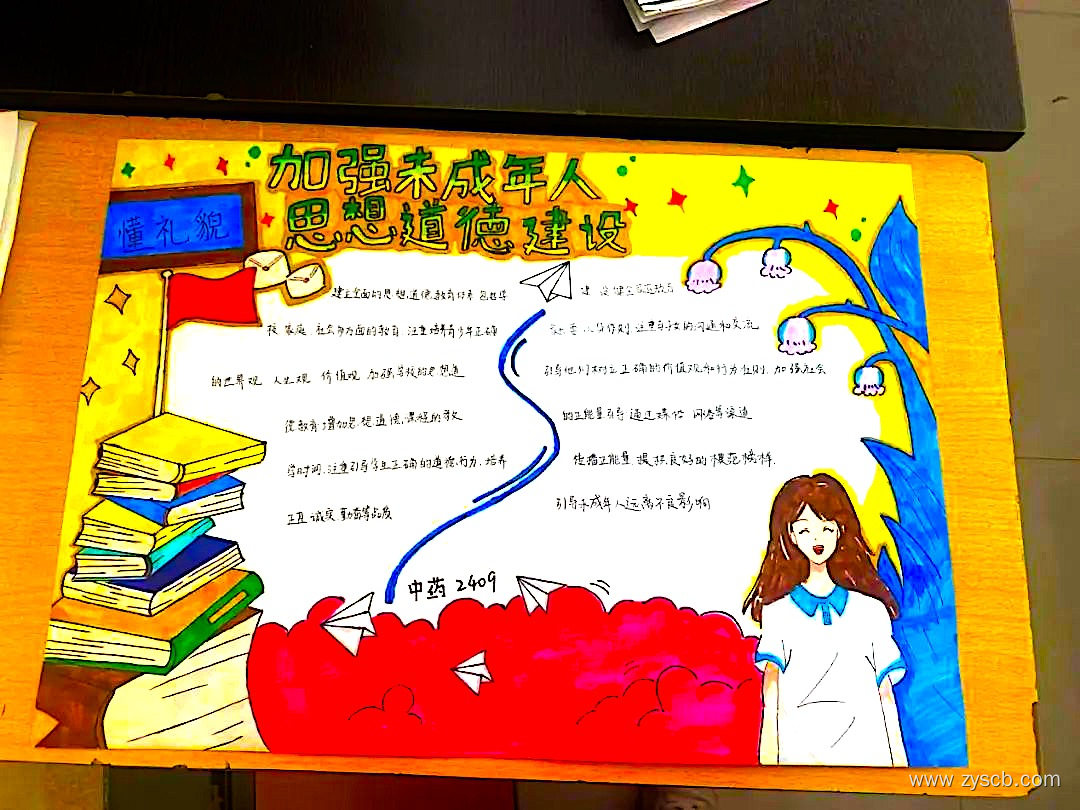 加强未成年人
思想道德建设
懂礼貌
建立全面的思想道德教育体系 包括学
校 家庭 社会多方面的教育 注重培养青少年正确
的世界观 人生观 价值观 加强学校的思想道
德教育 增加思想道德课程的教
学时间,注重引导学生正确的道德行为,培养
正直 诚实 勤奋等品质
建设健全家庭教育
父母要以身作则 注重与孩子的沟通和交流
引导他们树立正确的价值观和行为准则,加强社会
的正能量引导 通过媒体 网络等渠道
传播正能量 提供良好的模范榜样.
引导未成年人远离不良影响
中药 2409
www.zyscb.com